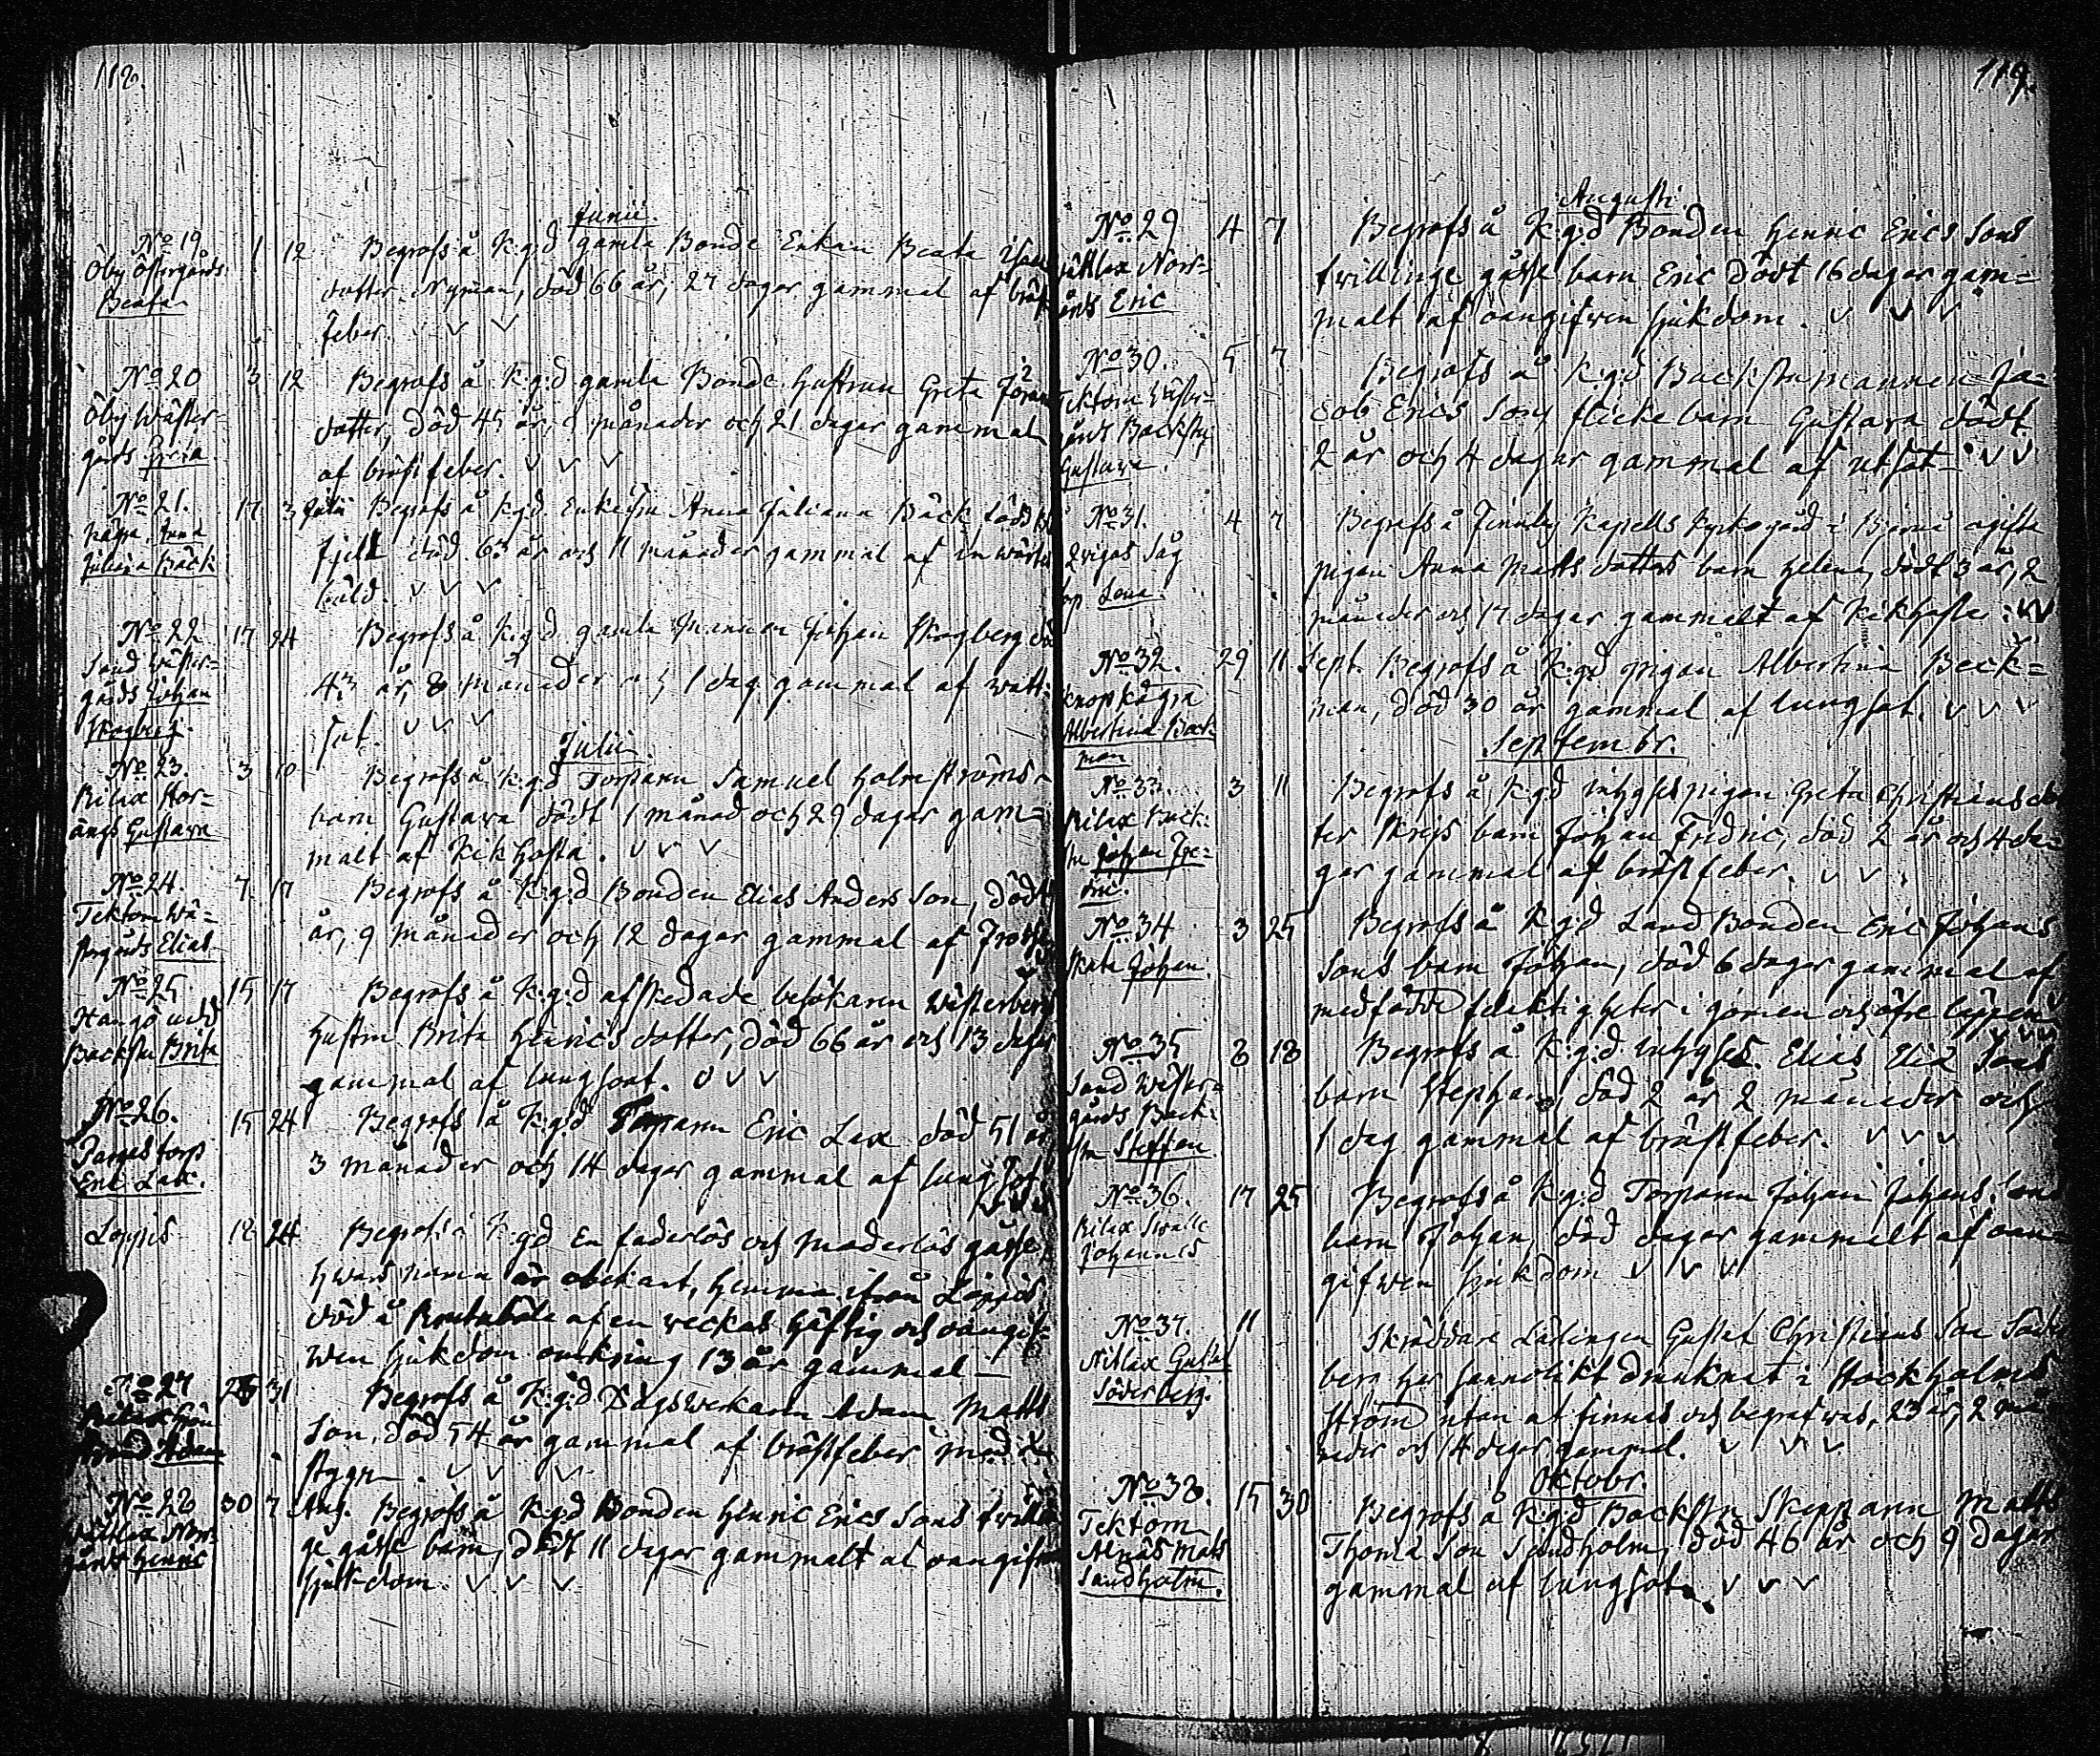 118.
Junii.
No 19.
Öby Östergårds
Beata
1 12 Begrofs å K:g:d gamla Bonde Enkan Beata
dotter Nyman, död 66 år, 27 dagar gammal af bröst
feber.
No 20
Öby Wäster-
gårds Greta
3 12 Begrofs å K:g:d gamla Bonde Hustrun Greta Johans
dotter, död 45 år, månader och 21 dagar gammal
af bröstfeber.
No 21.
Anna
Juliana Bäck
17 3 Julii Begrofs å K:g:d Anna Juliana Bäck född
död 63 år och 11 månader gammal af inwärtes
No 22
Sand Wäster-
gårds Johan
Skogberg.
17 24 Begrofs å K:g:d gamla mannen Johan Skogberg död
43 år, 8 månader och 1 dag gammal af watt-
sot.
Julii
No 23.
Rilax
ängs Gustava
3 10 Begrofs å K:g:d Torparn Samuel Holmströms
barn Gustava dödt 1 månad och 29 dagar gam-
malt af Kikhosta.
No 24.
Tektom Wä-
stergårds Elias
7 17 Begrofs å K:g:d Bonden Elias Anders Son, död
år, 9 månader och 12 dagar gammal af
No 25
Hangö udd
Backstu Brita
15 17 Begrofs å K:g:d afskedade besökarn Wästerbergs
Hustru Brita Henrics dotter, död 66 år och 13 dagar
gammal af lungsoat.
No 26.
torp
Eric Lax.
15 24 Begrofs å K:g:d Torparn Eric Lax död 51 år
3 månader och 14 dagar gammal af lungsot
Loppis
18 24 Begrofs å K:g:d En faderlös och moderlös gåsse,
hwars namn är obekant, hemma ifrån Loppis
död å af en veckas häftig och oangif-
wen sjukdom omkring 13 år gammal
No 27
Rilax
Adam
26 31 Begrofs å K:g:d Dagswerkarn Adam Matts
Son, död 54 år gammal af bröstfeber med
stygn.
No 28
Norr-
gårds Henric
30 7 Aug. Begrofs å K:g:d Bonden Henric Erics Sons twillin
ge gåsse barn, dödt 11 dagar gammalt af oangifwen
sjukdom.
119.
Augusti.
No 29
Norr-
gårds Eric
4 7 Begrofs å K:g:d Bonden Henric Erics Sons
twillinge gåsse barn Eric dödt 16 dagar gam-
malt af oangifwen sjukdom.
No 30.
Tektom Wäster-
gårds Backstu
Gustava.
5 7 Begrofs å K:g:d Backstumannen Ja-
cob Erics Sons flickebarn Gustava dödt
2 år och 4 dagar gammal af utsot
No 31.
Såg
Lena
4 7 Begrofs å Finnby Kapells Kyrkogård i Bjerno ogifta
pigan Anna Matts dotters barn Helena, dödt 3 år, 2
månader och 17 dagar gammalt af Kikhosta
No 32.
Albertina Beck-
man
29 11 Sept. Begrofs å K:g:d pigan Albertina Beck-
man, död 30 år gammal af lungsot.
Septembr.
No 33.
Rilax Back-
stu Johan Fre-
dric.
3 11 Begrofs å K:g:d inhyses pigan Greta Christians dot
ter barn Johan Fridric, död 2 år och 4 da-
gar gammal af bröstfeber.
No 34
Skata Johan.
3 25 Begrofs å K:g:d Land Bonden Eric Johans
Sons barn Johan, död 6 dagar gammal af
medfödde felaktigheter i gomen och öfre läppen
No 35
Sand Wäster-
gårds Back-
stu Steffan
8 18 Begrofs å K:g:d Inhyses. Elias Eliæ Sons
barn Stephan, död 2 år 2 månader och
1 dag gammal af bröstfeber.
No 36.
Rilax
Johannes
17 25 Begrofs å K:g:d Torparn Johan Johans Sons
barn Johan, död dagar gammalt af oan-
gifwen sjukdom
No 37.
Nitlax Gustaf
Söderberg.
11 Skräddare Lärlingen Gustaf Christians Son Söder
berg har sannolikt druknat i Stockholms
ström utan at finnas och begrafwas, 23 år, 2 må
nader och 14 dagar gammal.
Oktobr.
No 38.
Tektom
Alnäs Mats
Sandholm.
15 30 Begrofs å K:g:d Backstu Skepparn Matts
Thomæ Son Sandholm, död 46 år och 9 dagar
gammal af lungsot.